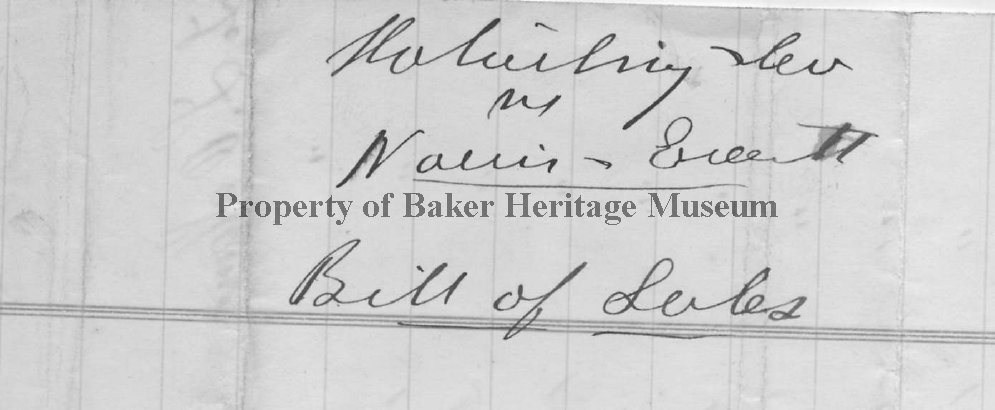 vs
Norris & Everett
Property of Baker Heritage Museum
Bill of Sales